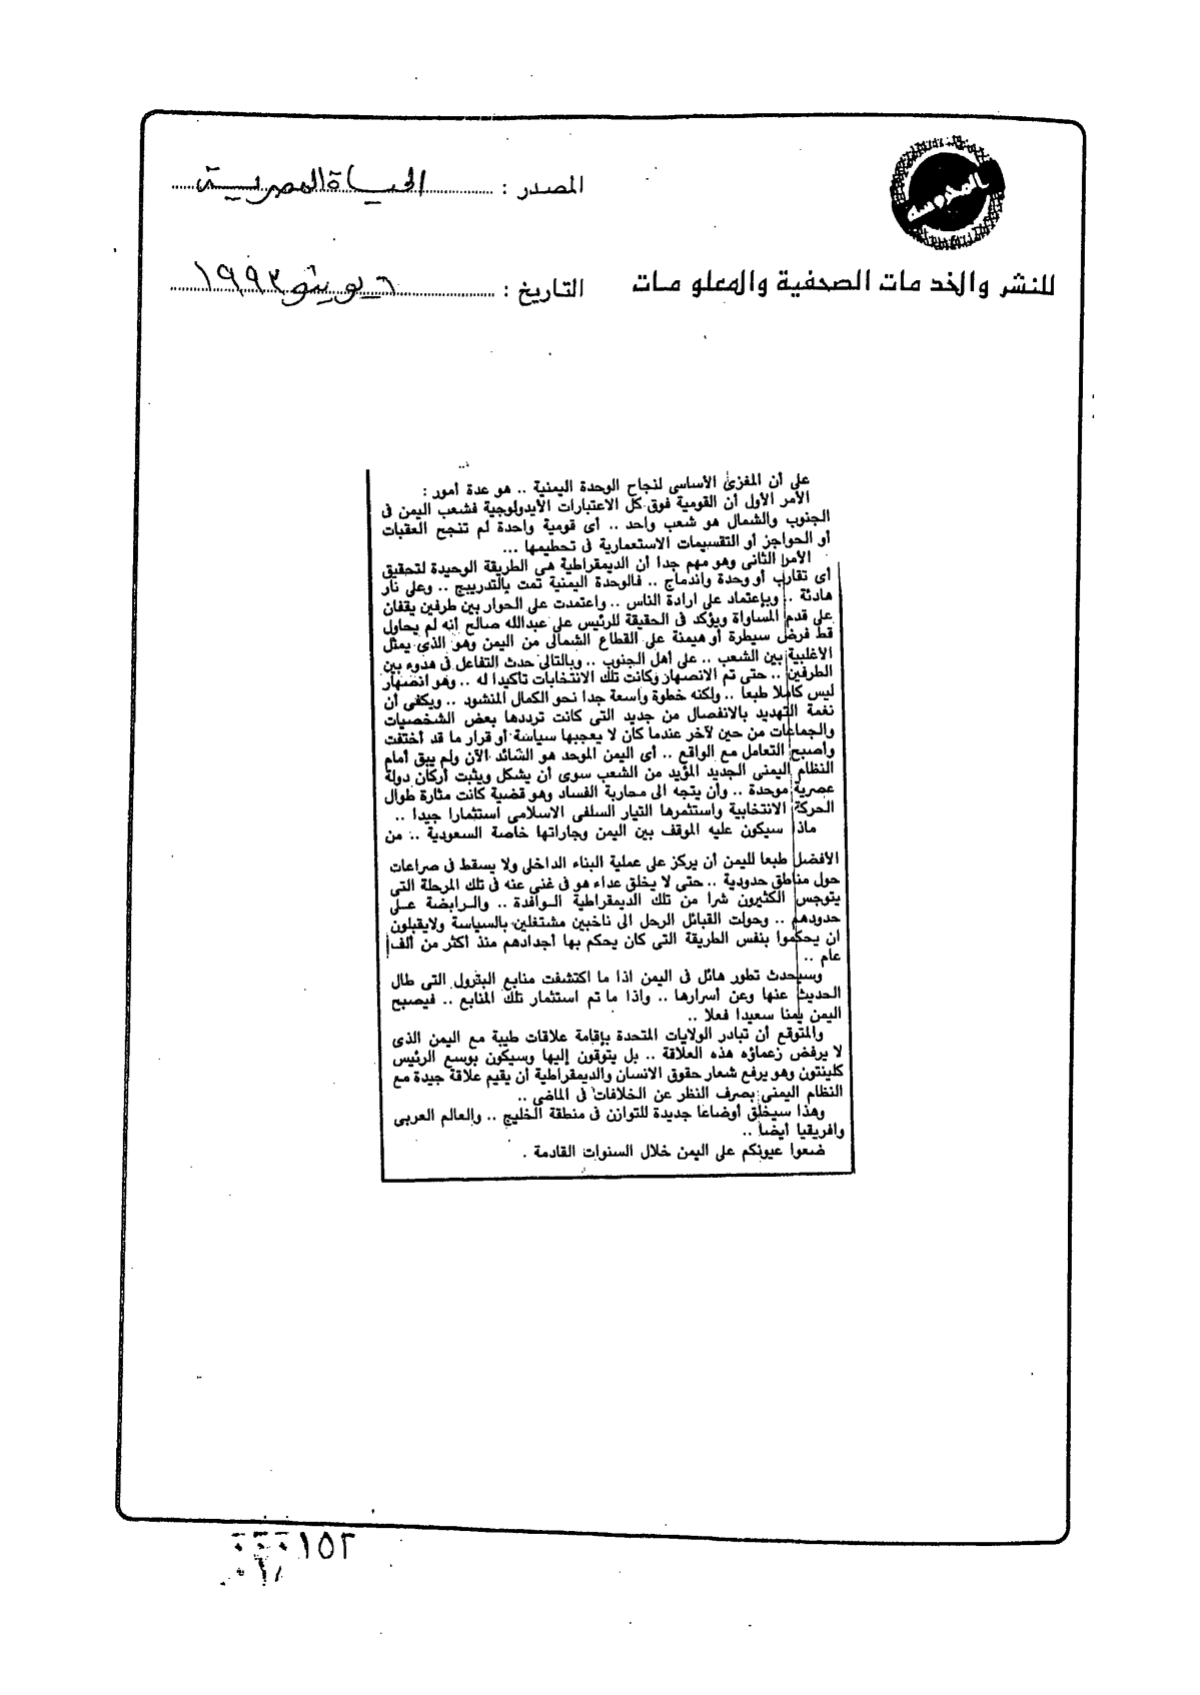 المحروسة
للنشر والخدمات الصحفية والمعلومات
المصدر : الحياة المصرية
التاريخ : ٦ يونيو ١٩٩٣
على أن المغزى الأساسى لنجاح الوحدة اليمنية .. هو عدة أمور :
الأمر الأول أن القومية فوق كل الاعتبارات الأيدولوجية فشعب اليمن فى
الجنوب والشمال هو شعب واحد .. أى قومية واحدة لم تنجح العقبات
أو الحواجز أو التقسيمات الاستعمارية فى تحطيمها ...
الأمر الثانى وهو مهم جدا أن الديمقراطية هى الطريقة الوحيدة لتحقيق
أى تقارب أو وحدة واندماج .. فالوحدة اليمنية تمت بالتدرييج .. وعلى نار
هادئة .. وبإعتماد على ارادة الناس .. واعتمدت على الحوار بين طرفين يقفان
على قدم المساواة ويؤكد فى الحقيقة للرئيس على عبدالله صالح إنه لم يحاول
قط فرض سيطرة أو هيمنة على القطاع الشمالى من اليمن وهو الذى يمثل
الأغلبية بين الشعب .. على أهل الجنوب .. وبالتالى حدث التفاعل فى هدوء بين
الطرفين .. حتى تم الانصهار وكانت تلك الانتخابات تأكيدا له .. وهو انصهار
ليس كاملا طبعا .. ولكنه خطوة واسعة جدا نحو الكمال المنشود .. ويكفى أن
نغمة التهديد بالانفصال من جديد التى كانت ترددها بعض الشخصيات
والجماعات من حين لآخر عندما كان لا يعجبها سياسة أو قرار ما قد أختفت
وأصبح التعامل مع الواقع .. أى اليمن الموحد هو السائد الآن ولم يبق أمام
النظام اليمنى الجديد المؤيد من الشعب سوى أن يشكل ويثبت أركان دولة
عصرية موحدة .. وأن يتجه الى محاربة الفساد وهو قضية كانت مثارة طوال
الحركة الانتخابية واستثمرها التيار السلفى الاسلامى أستثمارا جيدا ..
ماذا سيكون عليه الموقف بين اليمن وجاراتها خاصة السعودية .. من
الأفضل طبعا لليمن أن يركز على عملية البناء الداخلى ولا يسقط فى صراعات
حول مناطق حدودية .. حتى لا يخلق عداء هو فى غنى عنه فى تلك المرحلة التى
يتوجس الكثيرون شرا من تلك الديمقراطية الوافدة .. والرابضة على
حدودهم .. وحولت القبائل الرحل الى ناخبين مشتغلين بالسياسة ولايقبلون
ان يحكموا بنفس الطريقة التى كان يحكم بها أجدادهم منذ أكثر من ألف
عام ..
وسيحدث تطور هائل فى اليمن اذا ما اكتشفت منابع البترول التى طال
الحديث عنها وعن أسرارها .. واذا ما تم استثمار تلك المنابع .. فيصبح
اليمن يمنا سعيدا فعلا ..
والمتوقع أن تبادر الولايات المتحدة بإقامة علاقات طيبة مع اليمن الذى
لا يرفض زعماؤه هذه العلاقة .. بل يتوقون إليها وسيكون بوسع الرئيس
كلينتون وهو يرفع شعار حقوق الانسان والديمقراطية أن يقيم علاقة جيدة مع
النظام اليمنى بصرف النظر عن الخلافات فى الماضى ..
وهذا سيخلق أوضاعا جديدة للتوازن فى منطقة الخليج .. والعالم العربى
وافريقيا أيضا ..
ضعوا عيونكم على اليمن خلال السنوات القادمة .
٠٠٠١٥٢